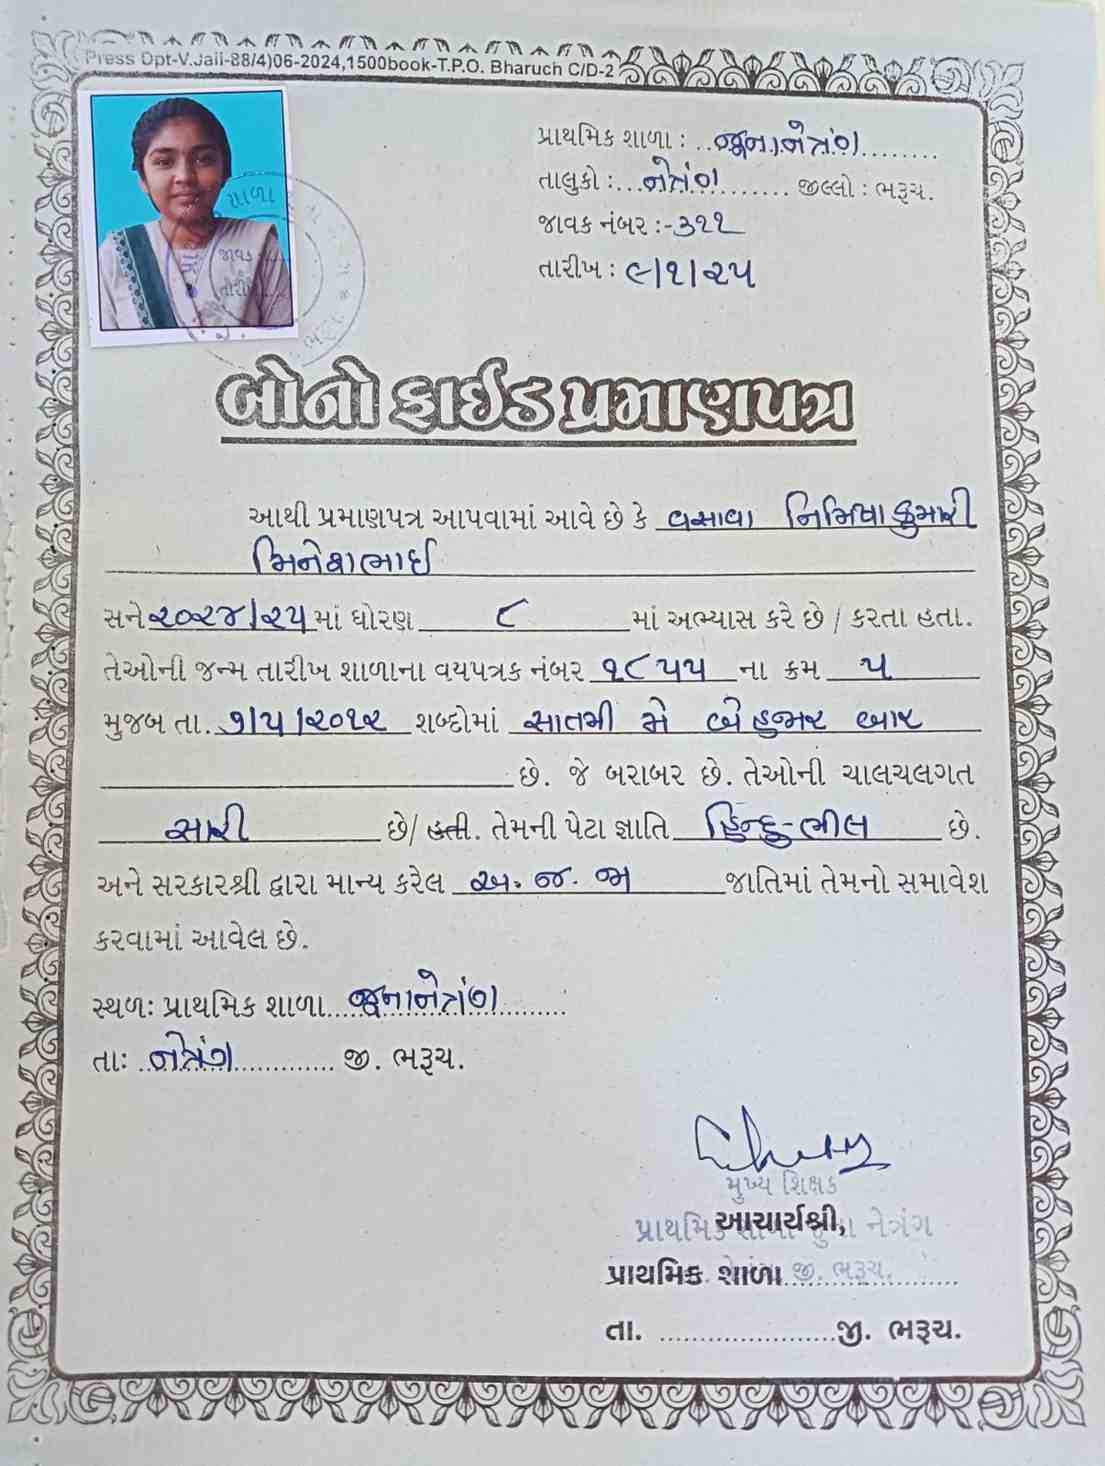 Press Dpt-V.Jail-88/4)06-2024,1500book-T.P.O. Bharuch C/D-2
પ્રાથમિક શાળા : ..જુનાનેત્રંગ........
તાલુકો :...નેત્રંગ.......... જીલ્લો : ભરૂચ.
જાવક નંબર :-૩૨૨
તારીખ : ૯/૧/૨૫
શાળા
જાવક
તારીખ
બોનોફાઈડ પ્રમાણપત્ર
આથી પ્રમાણપત્ર આપવામાં આવે છે કે વસાવા નિમિષાકુમારી
મિનેશભાઈ
સને ૨૦૨૪/૨૫ માં ધોરણ ૮ માં અભ્યાસ કરે છે / કરતા હતા.
તેઓની જન્મ તારીખ શાળાના વયપત્રક નંબર ૧૮૫૫ ના ક્રમ ૫
મુજબ તા. ૭/૫/૨૦૧૨ શબ્દોમાં સાતમી મે બે હજાર બાર
છે. જે બરાબર છે. તેઓની ચાલચલગત
સારી છે/ હતી. તેમની પેટા જ્ઞાતિ હિન્દુ-ભીલ છે.
અને સરકારશ્રી દ્વારા માન્ય કરેલ અ.જ.જા જાતિમાં તેમનો સમાવેશ
કરવામાં આવેલ છે.
સ્થળઃ પ્રાથમિક શાળા....જુનાનેત્રંગ..........
તાઃ ..નેત્રંગ............. જી. ભરૂચ.
મુખ્ય શિક્ષક
આચાર્યશ્રી,
પ્રાથમિક શાળા જુના નેત્રંગ
પ્રાથમિક શાળા......................
જી. ભરૂચ.
તા. ......................જી. ભરૂચ.